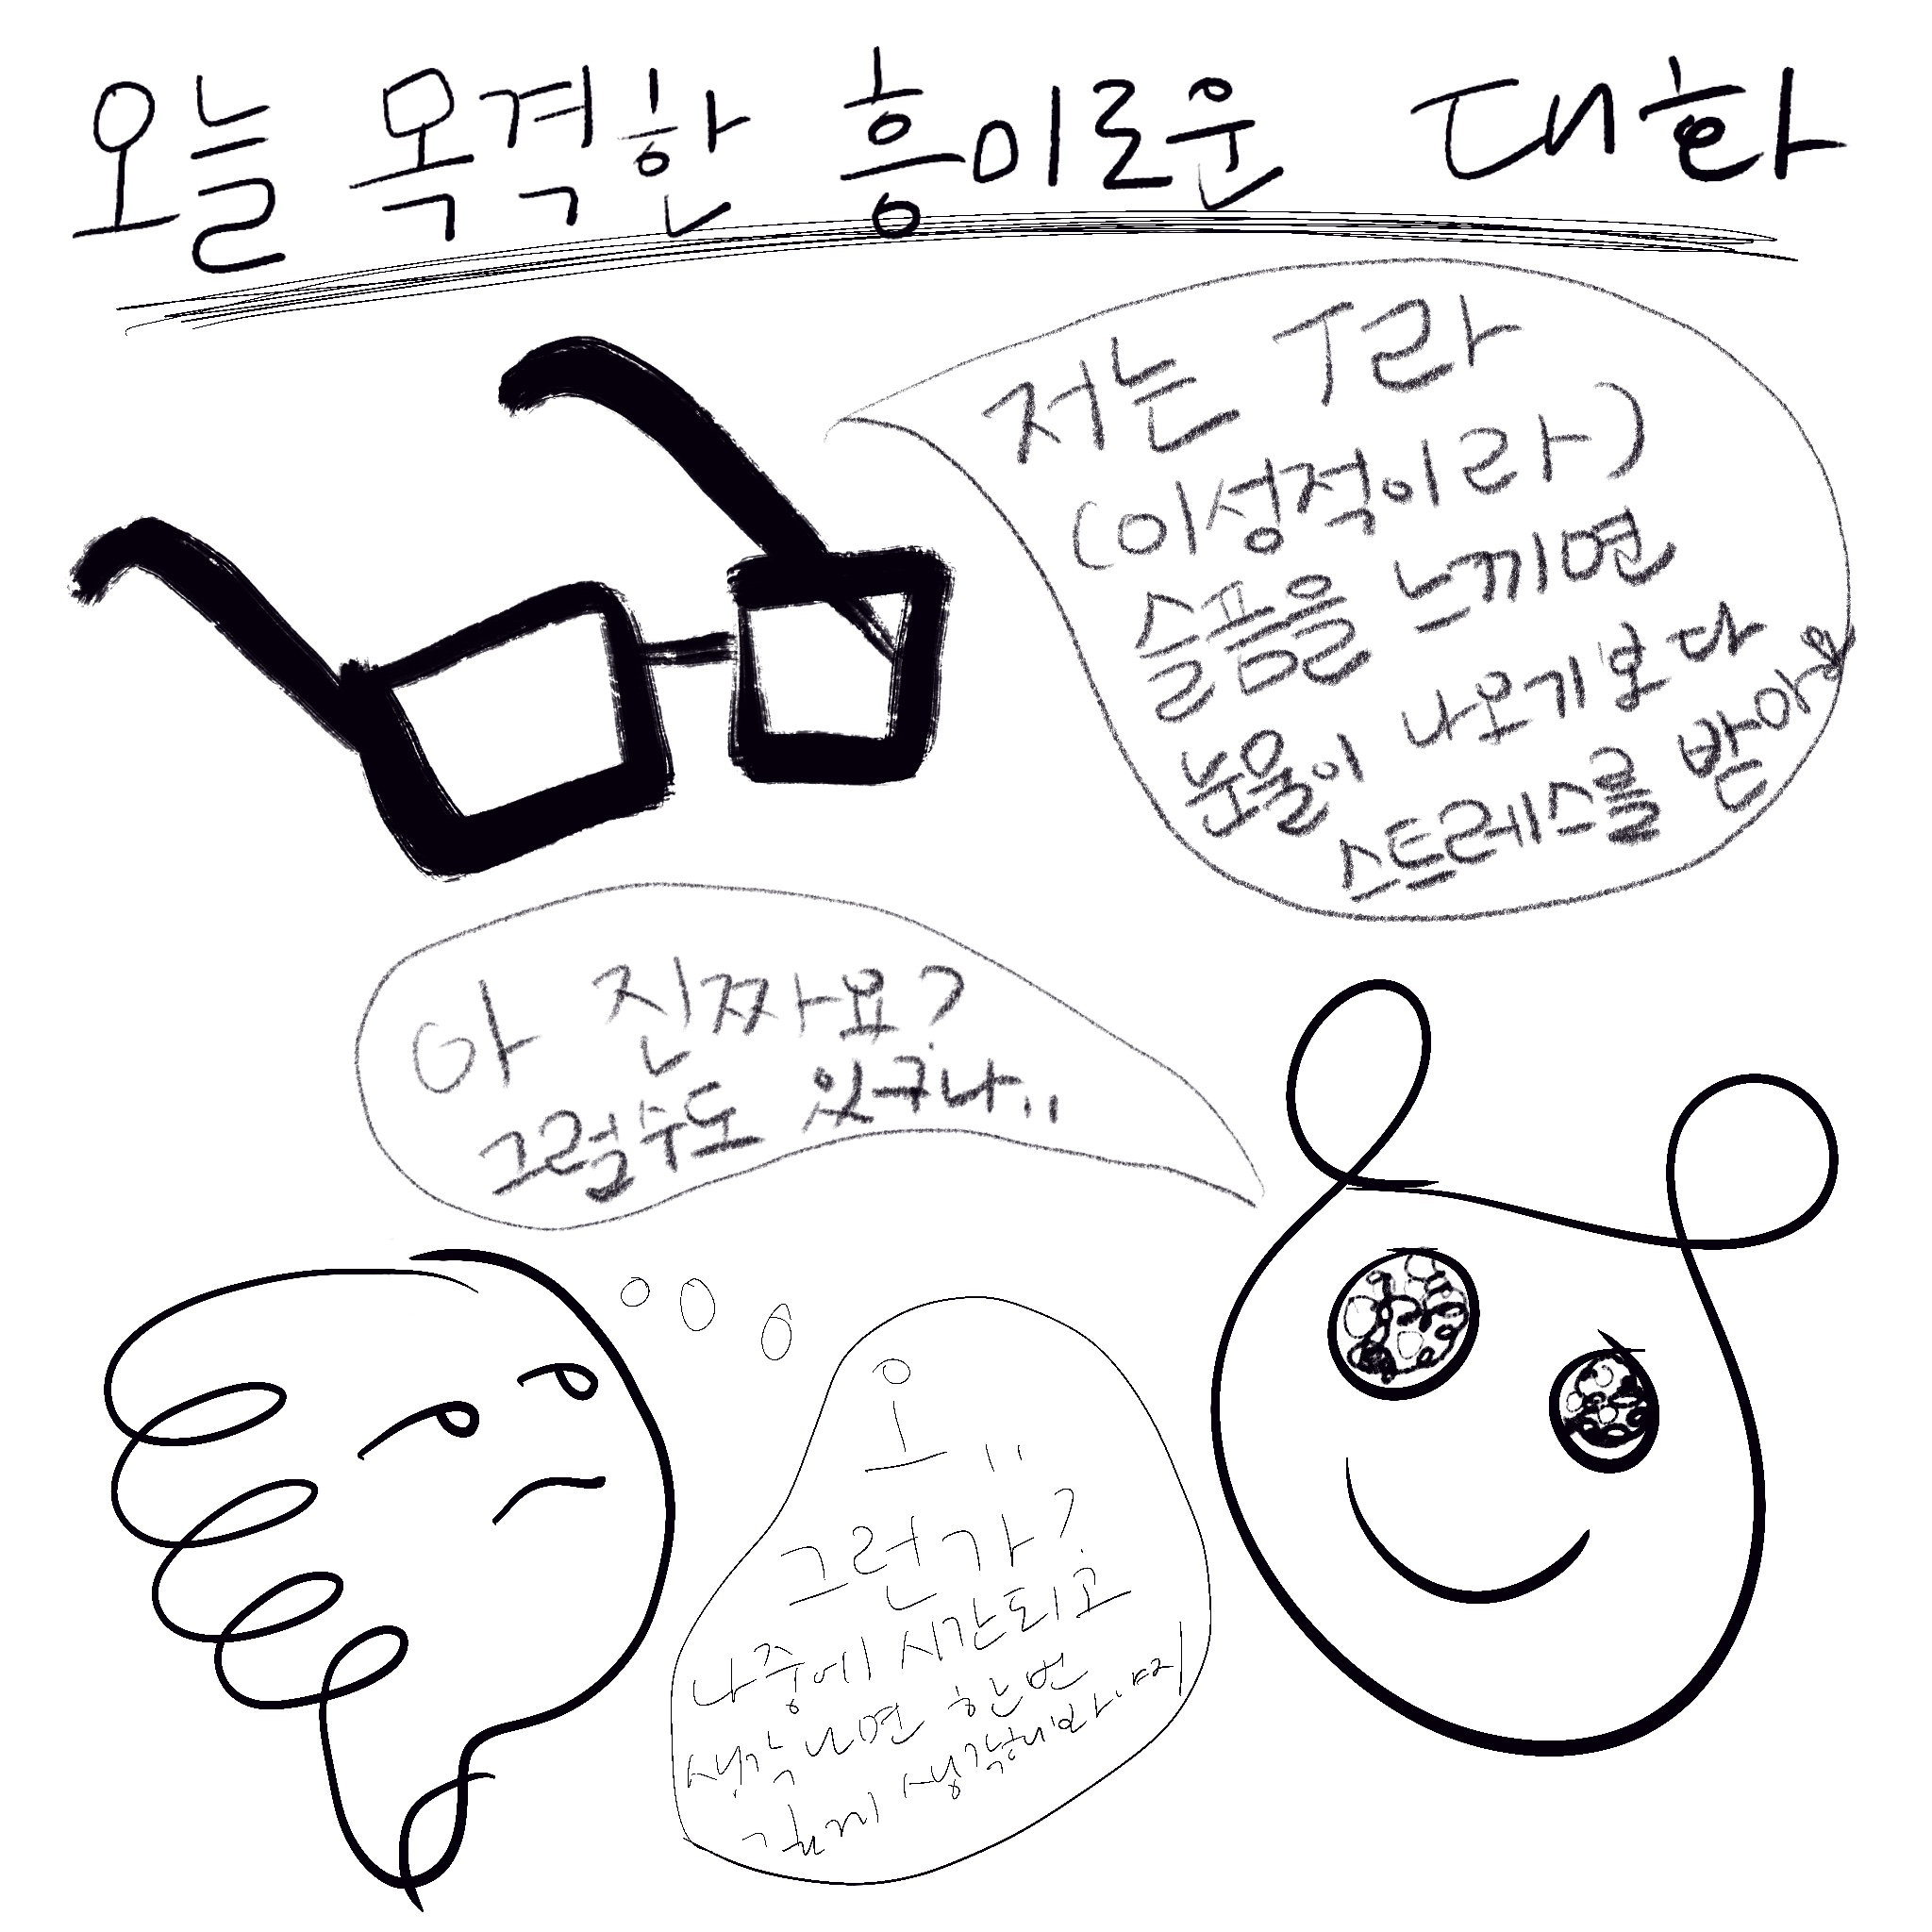 오늘 목격한 흥미로운 대화
저는 T라
(이성적이라)
슬픔을 느끼면
눈물이 나오기보다
스트레스를 받아요
아 진짜요?
그럴수도 있구나..
오..
그런가?
나중에 시간되고
생각나면 한번
깊게 생각해봐야지